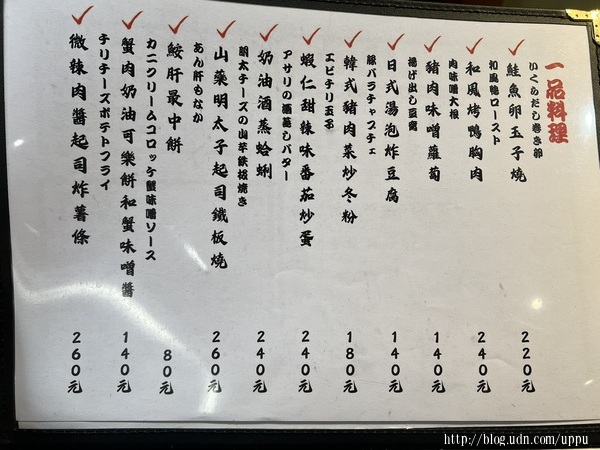 一品料理
いくらだし巻き卵
鮭魚卵玉子燒
220元
和風鴨ロースト
和風烤鴨胸肉
240元
肉味噌大根
豬肉味噌蘿蔔
140元
揚げ出し豆腐
日式湯泡炸豆腐
140元
豚バラチャプチェ
韓式豬肉菜炒冬粉
180元
エビチリ玉子
蝦仁甜辣味番茄炒蛋
240元
アサリの酒蒸しバター
奶油酒蒸蛤蜊
240元
明太チーズの山芋鉄板焼き
山藥明太子起司鐵板燒
260元
あん肝もなか
鮟肝最中餅
80元
カニクリームコロッケ蟹味噌ソース
蟹肉奶油可樂餅和蟹味噌醬
140元
チリチーズポテトフライ
微辣肉醬起司炸薯條
260元
http://blog.udn.com/uppu